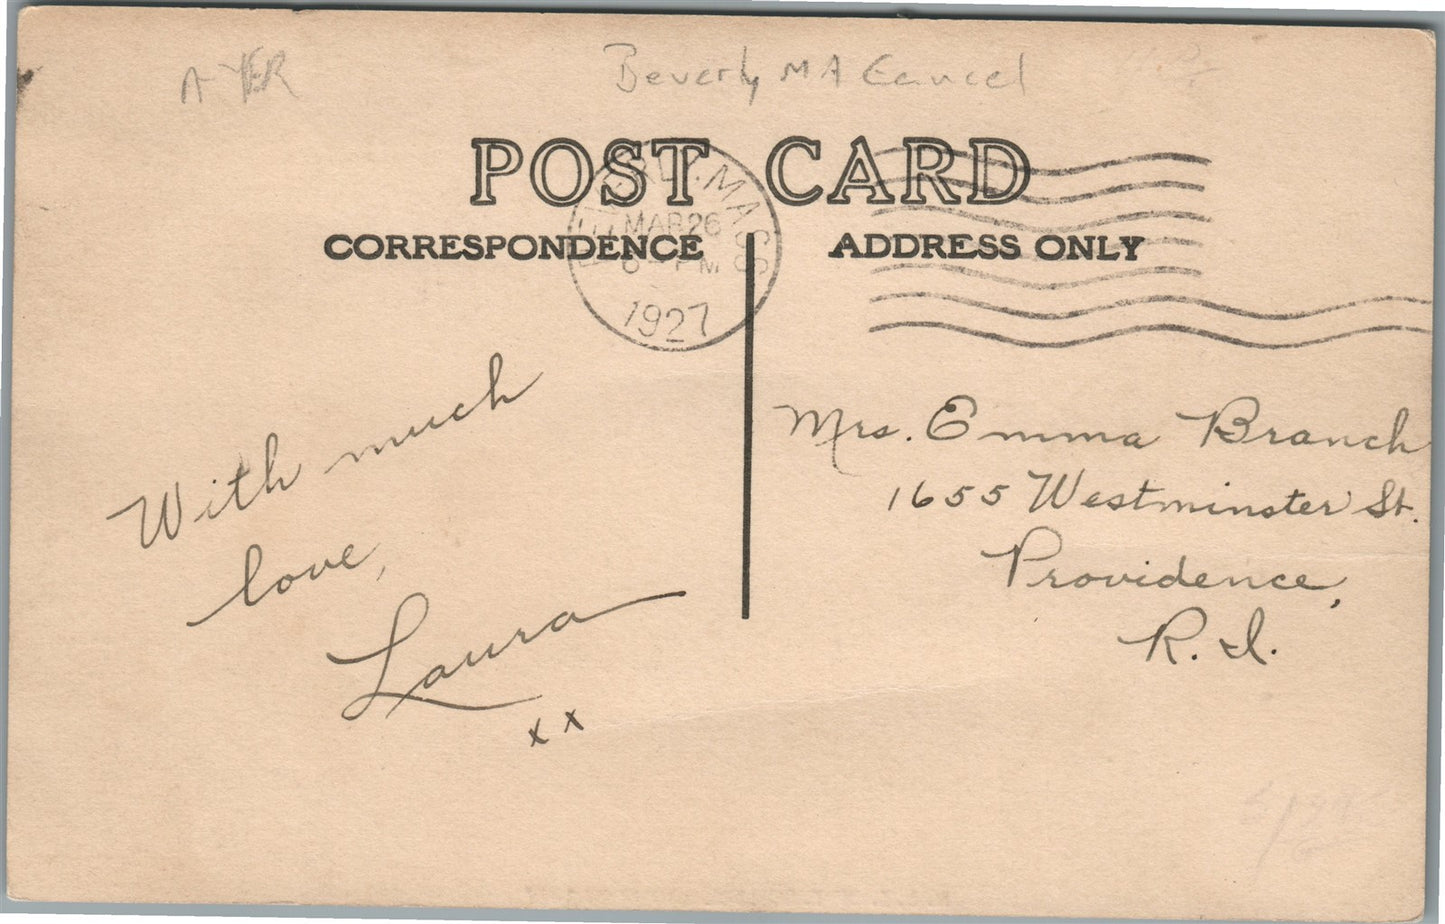 A YER
Beverly MA Cancel
POST CARD
BEVERLY, MASS
MAR 26
6 - PM
1927
CORRESPONDENCE
ADDRESS ONLY
With much
love,
Laura
x x
Mrs. Emma Branch
1655 Westminster St.
Providence,
R. I.